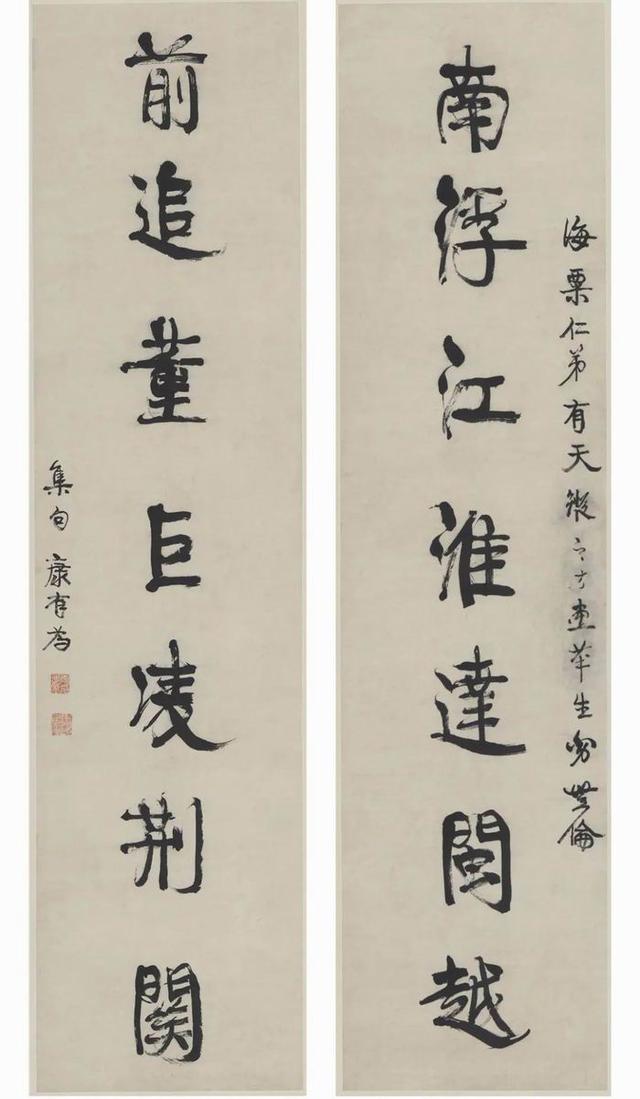 海粟仁弟有天縱之才畫筆生無倫
南浮江淮達閩越
前追董巨凌荊關
集句 康有為